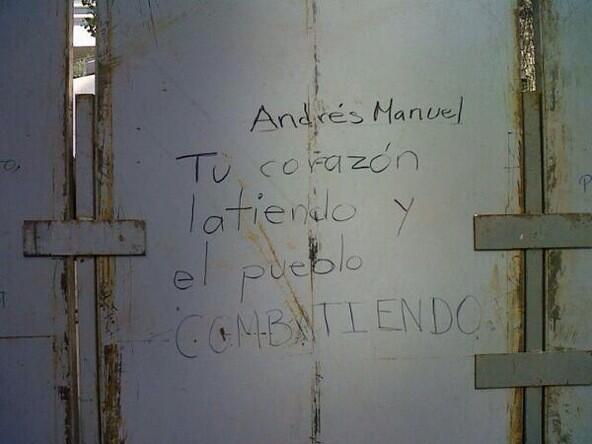 Andrés Manuel
Tu corazón
latiendo y
el pueblo
COMBATIENDO